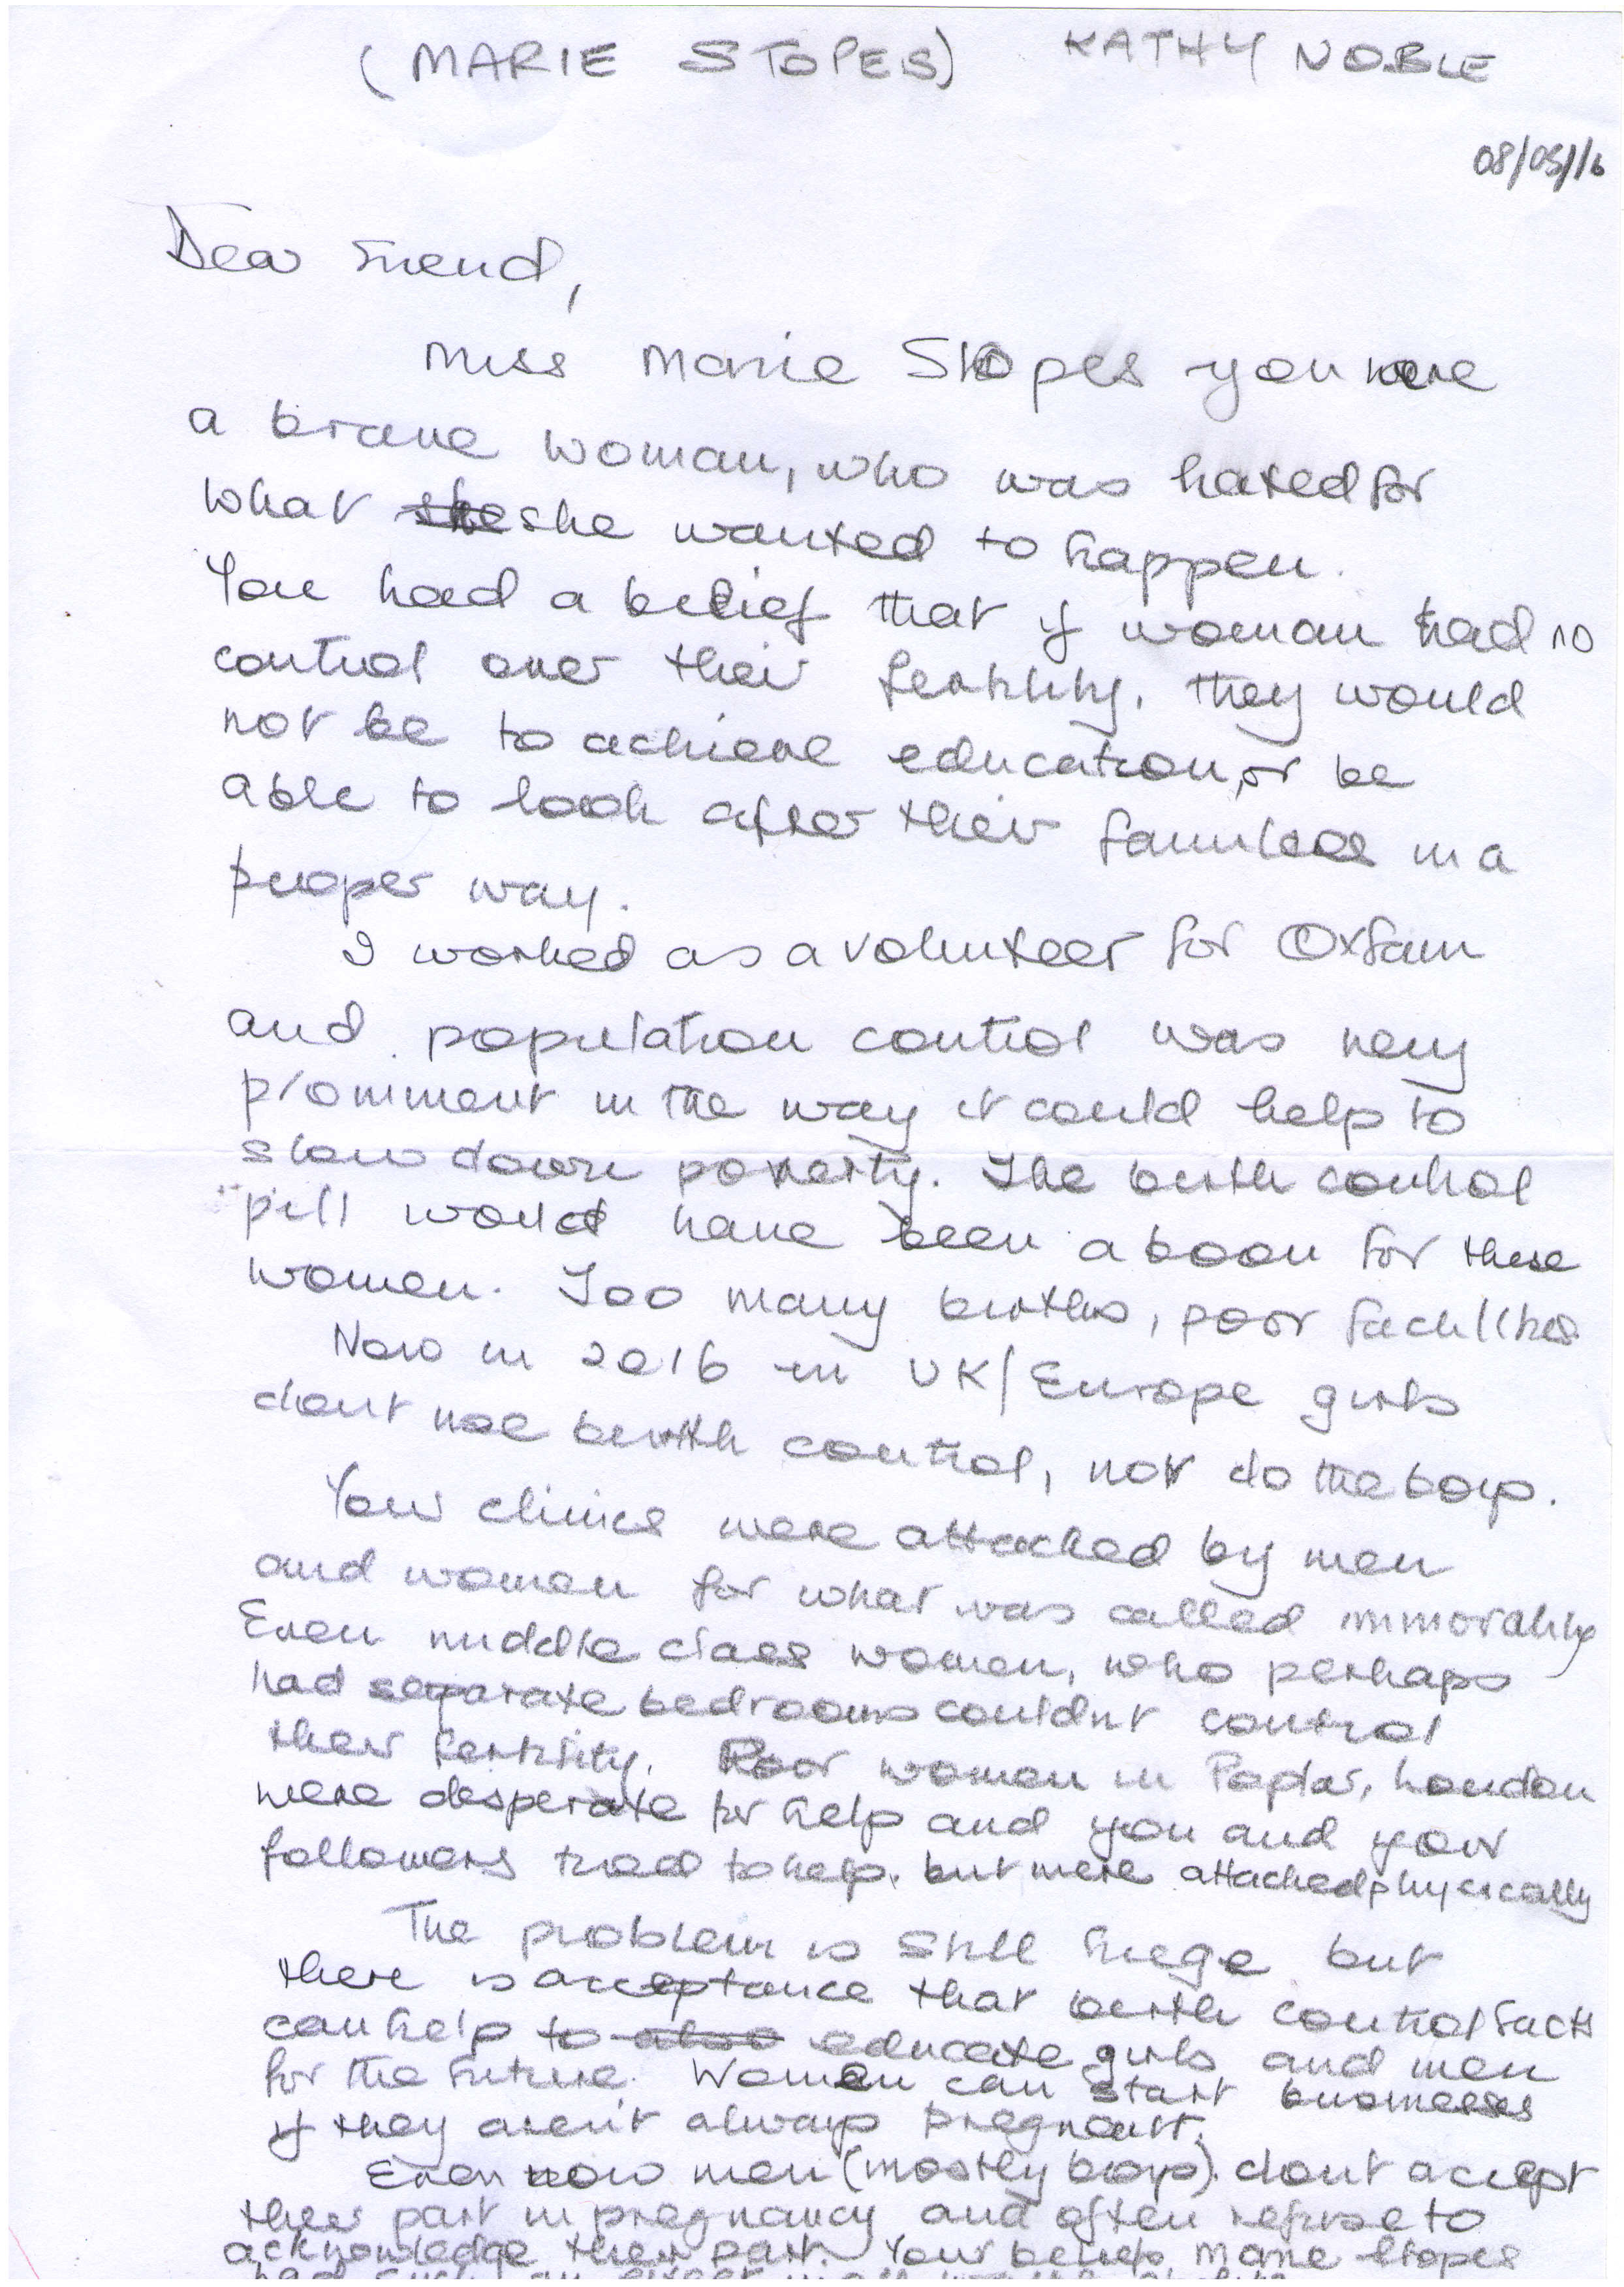 (MARIE STOPES) KATHY NOBLE
08/05/16
Dear Friend,
Miss Marie Stopes you were
a brave woman, who was hated for
what she she wanted to happen.
You had a belief that if woman had no
control over their fertility, they would
not be to achieve education, or be
able to look after their families in a
proper way.
I worked as a volunteer for Oxfam
and population control was very
prominent in the way it could help to
slow down poverty. The birth control
pill would have been a boon for these
women. Too many births, poor facilities
Now in 2016 in UK/Europe girls
dont use birth control, not do the boys.
Your clinics were attacked by men
and women for what was called immorality
Even middle class women, who perhaps
had separate bedrooms couldnt control
their fertility. Poor women in Poplar, London
were desperate for help and you and your
followers tried to help. but were attacked physically
The problem is still huge but
there is acceptance that birth control facts
can help to also educate girls and men
for the future. Women can start businesses
if they aren't always pregnant.
Even now men (mostly boys). dont accept
their part in pregnancy and often refuse to
acknowledge their part. Your beliefs Marie Stopes